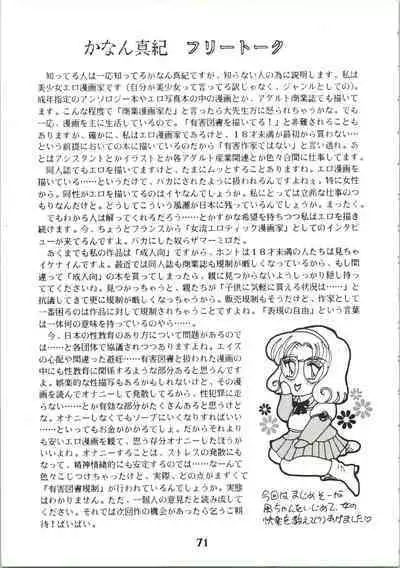 かなん真紀　フリートーク
知ってる人は一応知ってるかなん真紀ですが、知らない人の為に説明します。私は
美少女エロ漫画家です（自分が美少女って言ってる訳じゃなく、ジャンルとしての）。
成年指定のアンソロジー本やエロ写真本の中の漫画とか、アダルト商業誌でも描いて
ます。こんな程度で「商業漫画家だ」と言ったら大先生方に怒られちゃうかな。でも
一応、漫画を主に生活しているのです。「有害図書を描いてる！」と非難されることも
ありますが、確かに、私はエロ漫画家であるけど、１８才未満が最初から買わない…
という前提においての本に描いているのだから「有害作家ではない」と言い逃れ。あ
とはアシスタントとかイラストとか各アダルト産業関連とか色々合間に仕事してます。
同人誌でもエロは描いてますけど、たまにムッとすることありますね。エロ漫画を
描いている……というだけで、バカにされたように扱われるんですよねぇ。特に女性
から。同性がエロを描いてるのはイヤなんでしょうか。私にとっては立派な仕事のつ
もりなんだけど。どうしてこういう風潮が日本に残っているんでしょうか。まったく。
でもわかる人は解ってくれるだろう……とかすかな希望を持ちつつ私はエロを描き
続けます。今、ちょうどフランスから「女流エロティック漫画家」としてのインタビ
ューが来てるんですよ。バカにした奴らザマーミロだ。
あくまでも私の作品は「成人向」ですから、ホントは１８才未満の人たちは見ちゃ
イケナイんですよ。最近では同人誌も商業誌も規制が厳しくなっているから、もし間
違って「成人向」の本を買ってしまったら、親に見つからないようしっかり隠し持っ
ててくださいね。見つかっちゃうと、親たちが「子供に気軽に買える状況は……」と
抗議してきて更に規制が厳しくなっちゃうから。販売規制もそうだけど、作家として
一番困るのは作品に対して規制されちゃうことですよね。「表現の自由」という言葉
は一体何の意味を持っているのやら……。
今、日本の性教育のあり方について問題があるので
は……と各団体で協議されつつありますよね。エイズ
の心配や間違った避妊……有害図書と扱われた漫画の
中にも性教育に関係するような部分あると思うんです
よ。娯楽的な性描写もあるかもしれないけど、その漫
画を読んでオナニーして発散してるから、性犯罪に走
らない……とか有効な部分がたくさんあると思うけど
な。オナニーしなくてもソープにいくなりすればいい
……といってもお金がかかるでしょ。だからそれより
も安いエロ漫画を観て、思う存分オナニーしたほうが
いいよね。オナニーすることは、ストレスの発散にも
なって、精神情緒的にも安定するのでは……なーんて
色々こじつけちゃったけど、実際、どの点がまずくて
「有害図書規制」が行われているんでしょうか。実態
はわかりません。ただ、一個人の意見だと読み流して
ください。それでは次回作の機会があったら乞うご期
待！ばいばい。
今回はまじめそーな
男ちゃんをいじめて、女の
快楽を教えてりあげました♡
71